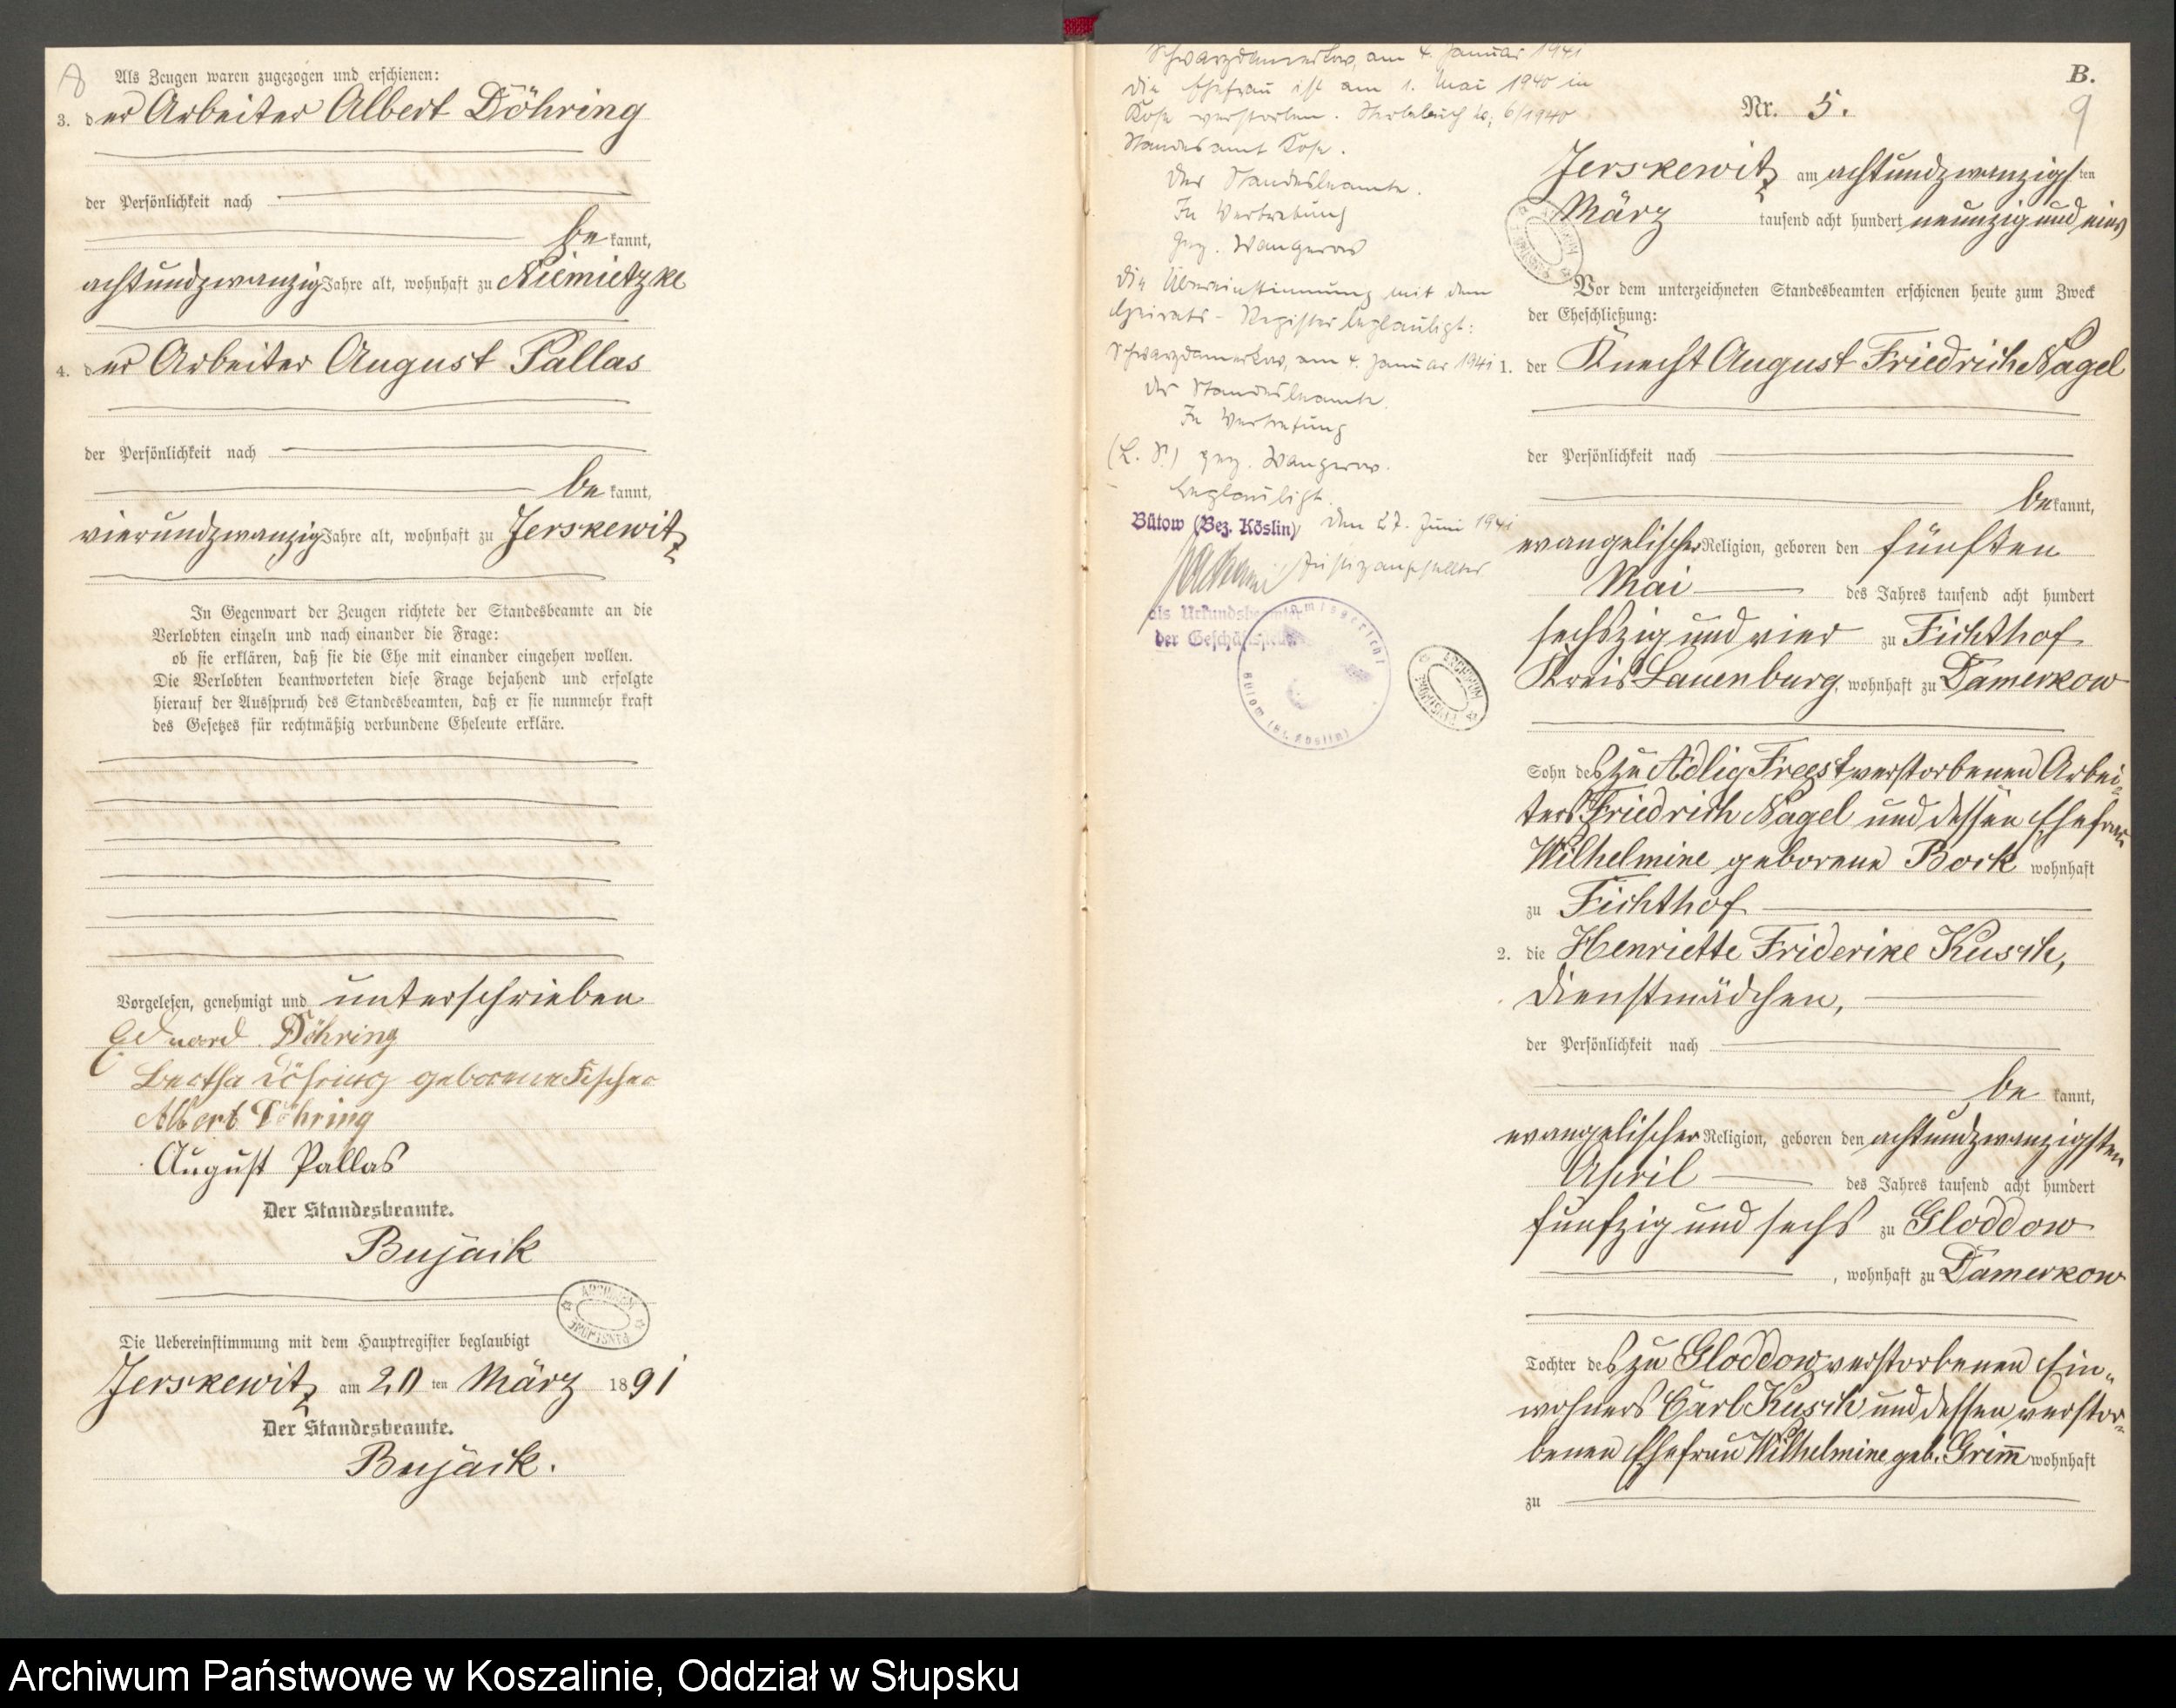 8
Als Zeugen waren zugezogen und erschienen:
3. der Arbeiter Albert Döhring
der Persönlichkeit nach
be kannt,
achtundzwanzig Jahre alt, wohnhaft zu Niemietzke
4. der Arbeiter August Pallas
der Persönlichkeit nach
be kannt,
vierundzwanzig Jahre alt, wohnhaft zu Jerskewitz
In Gegenwart der Zeugen richtete der Standesbeamte an die
Verlobten einzeln und nach einander die Frage:
ob sie erklären, daß sie die Ehe mit einander eingehen wollen.
Die Verlobten beantworteten diese Frage bejahend und erfolgte
hierauf der Ausspruch des Standesbeamten, daß er sie nunmehr kraft
des Gesetzes für rechtmäßig verbundene Eheleute erkläre.
Vorgelesen, genehmigt und unterschrieben
Eduard Döhring
Bertha Döhring geborene Fischer
Albert Döhring
August Pallas
Der Standesbeamte.
Bujack
ARCHIWUM PAŃSTWOWE
Die Uebereinstimmung mit dem Hauptregister beglaubigt
Jerskewitz am 20 ten März 1891
Der Standesbeamte.
Bujack.
Schwarzdamerkow, am 4. Januar 1941
Die Ehefrau ist am 1. Mai 1940 in
Kose verstorben. Sterbebuch No. 6/1940
Standesamt Kose.
Der Standesbeamte.
In Vertretung
gez. Wangerow
Die Übereinstimmung mit dem
Heirats-Register beglaubigt:
Schwarzdamerkow, am 4. Januar 1941
der Standesbeamte.
In Vertretung
(L. S.) gez. Wangerow.
Beglaubigt.
Bütow (Bez. Köslin), den 27. Juni 1941
Justizangestellter
als Urkundsbeamter
der Geschäftsstelle
Amtsgericht
Bütow (Bz. Köslin)
ARCHIWUM PAŃSTWOWE
B.
9
Nr. 5.
Jerskewitz am achtundzwanzigsten
März tausend acht hundert neunzig und eins
ARCHIWUM PAŃSTWOWE
Vor dem unterzeichneten Standesbeamten erschienen heute zum Zweck
der Eheschließung:
1. der Knecht August Friedrich Nagel
der Persönlichkeit nach
be kannt,
evangelischer Religion, geboren den fünften
Mai des Jahres tausend acht hundert
sechszig und vier zu Fichthof
Kreis Lauenburg, wohnhaft zu Damerkow
Sohn des zu Adlig Freest verstorbenen Arbei-
ters Friedrich Nagel und dessen Ehefrau
Wilhelmine geborene Bork wohnhaft
zu Fichthof
2. die Henriette Friderike Kusch,
Dienstmädchen,
der Persönlichkeit nach
be kannt,
evangelischer Religion, geboren den achtundzwanzigsten
April des Jahres tausend acht hundert
fünfzig und sechs zu Gloddow
, wohnhaft zu Damerkow
Tochter des zu Gloddow verstorbenen Ein-
wohners Carl Kusch und dessen verstor-
benen Ehefrau Wilhelmine geb. Grim̄ wohnhaft
zu
Archiwum Państwowe w Koszalinie, Oddział w Słupsku